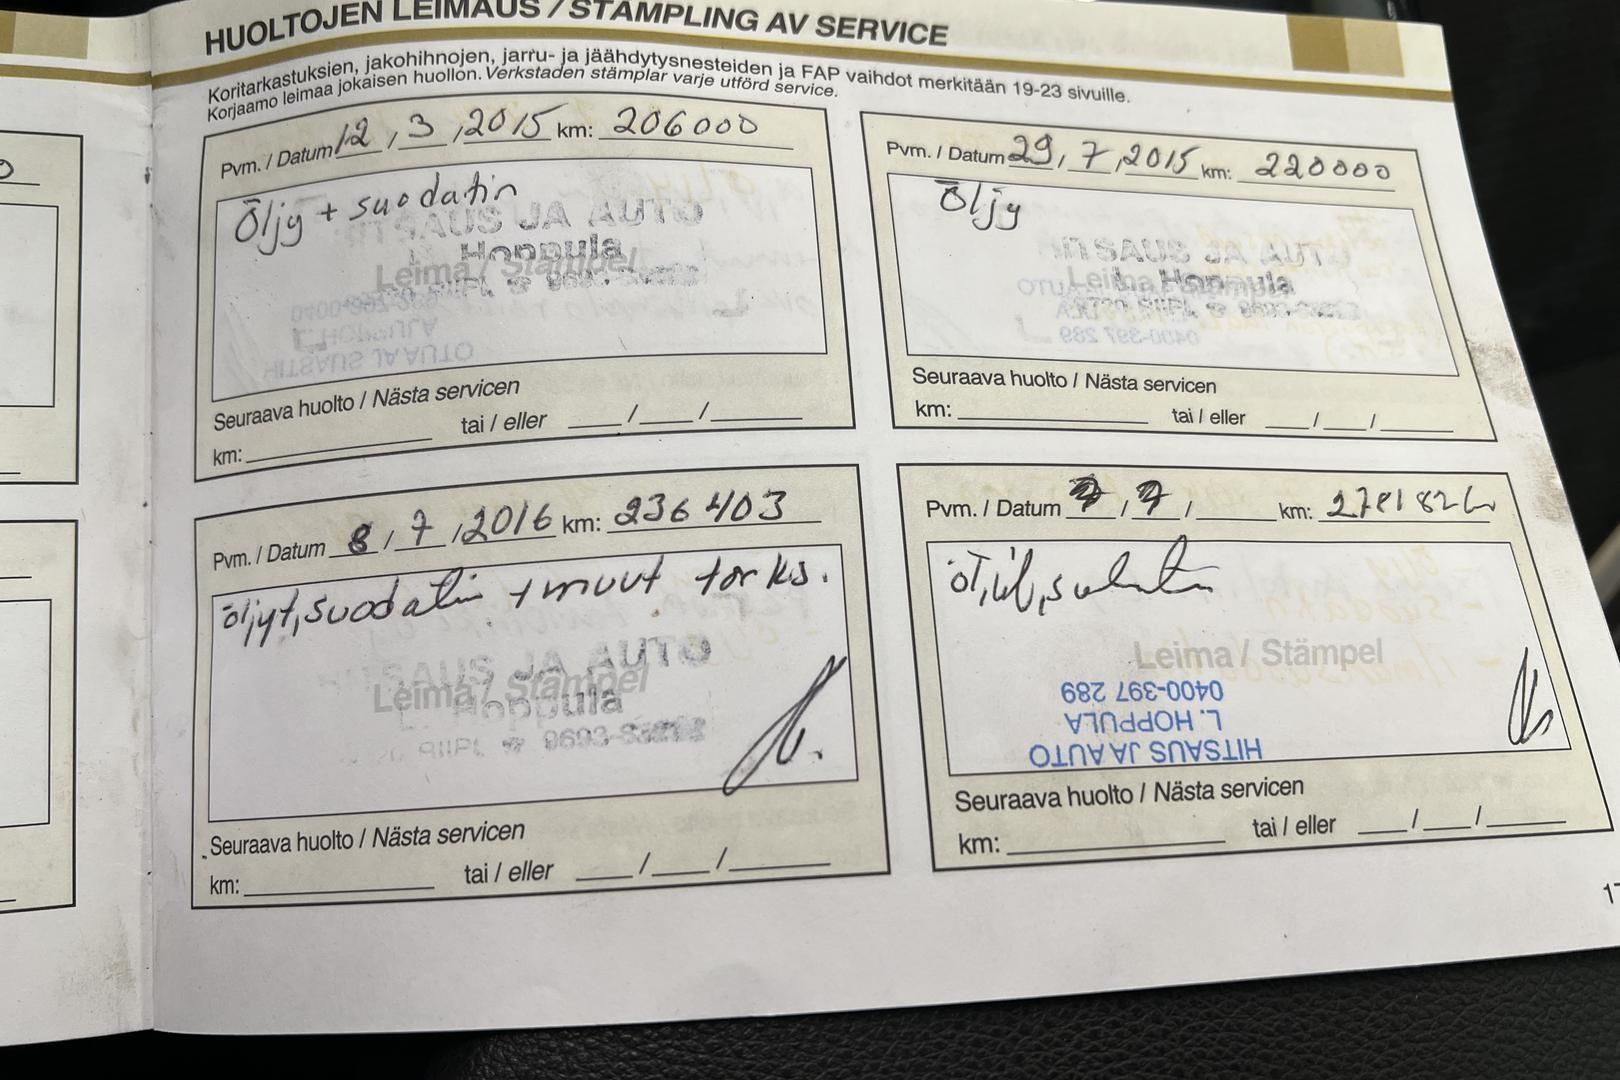 HUOLTOJEN LEIMAUS / STÄMPLING AV SERVICE
Koritarkastuksien, jakohihnojen, jarru- ja jäähdytysnesteiden ja FAP vaihdot merkitään 19-23 sivuille.
Korjaamo leimaa jokaisen huollon. Verkstaden stämplar varje utförd service.
Pvm. / Datum 12 , 3 , 2015 km: 206000
Öljy + suodatin
HITSAUS JA AUTO
Hoppula
Leima / Stämpel
Seuraava huolto / Nästa servicen
km: tai / eller / /
Pvm. / Datum 29 , 7 , 2015 km: 220000
Öljy
HITSAUS JA AUTO
Leima Hoppula
Seuraava huolto / Nästa servicen
km: tai / eller / /
Pvm. / Datum 8 / 7 / 2016 km: 236403
öljyt, suodatin + muut tarks.
HITSAUS JA AUTO
Leima / Stämpel
Hoppula
Seuraava huolto / Nästa servicen
km: tai / eller / /
Pvm. / Datum / 7 / km:
Leima / Stämpel
HITSAUS JA AUTO
L. HOPPULA
0400-397 289
Seuraava huolto / Nästa servicen
km: tai / eller / /